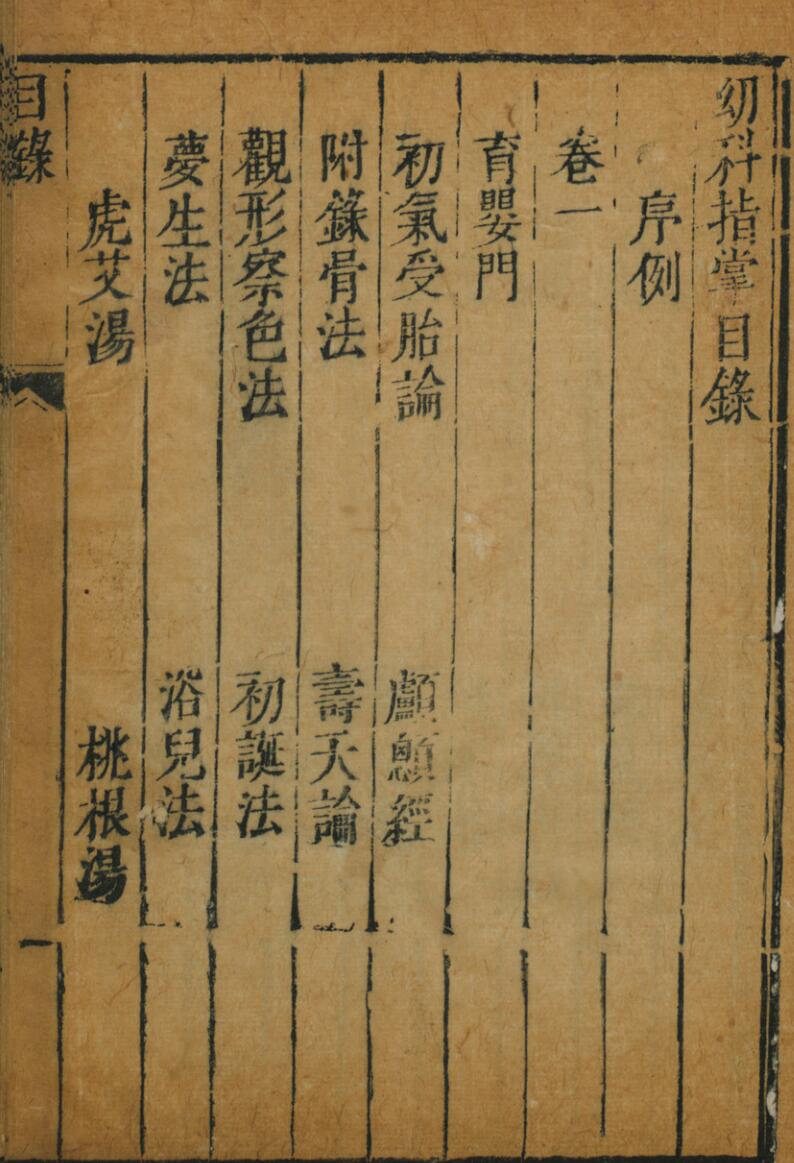 幼科指掌目錄
序例
卷一
育嬰門
初氣受胎論　顱顖經
附錄骨法　壽夭論
觀形察色法　初誕法
夢生法　浴兒法
虎艾湯　桃根湯
目錄　一